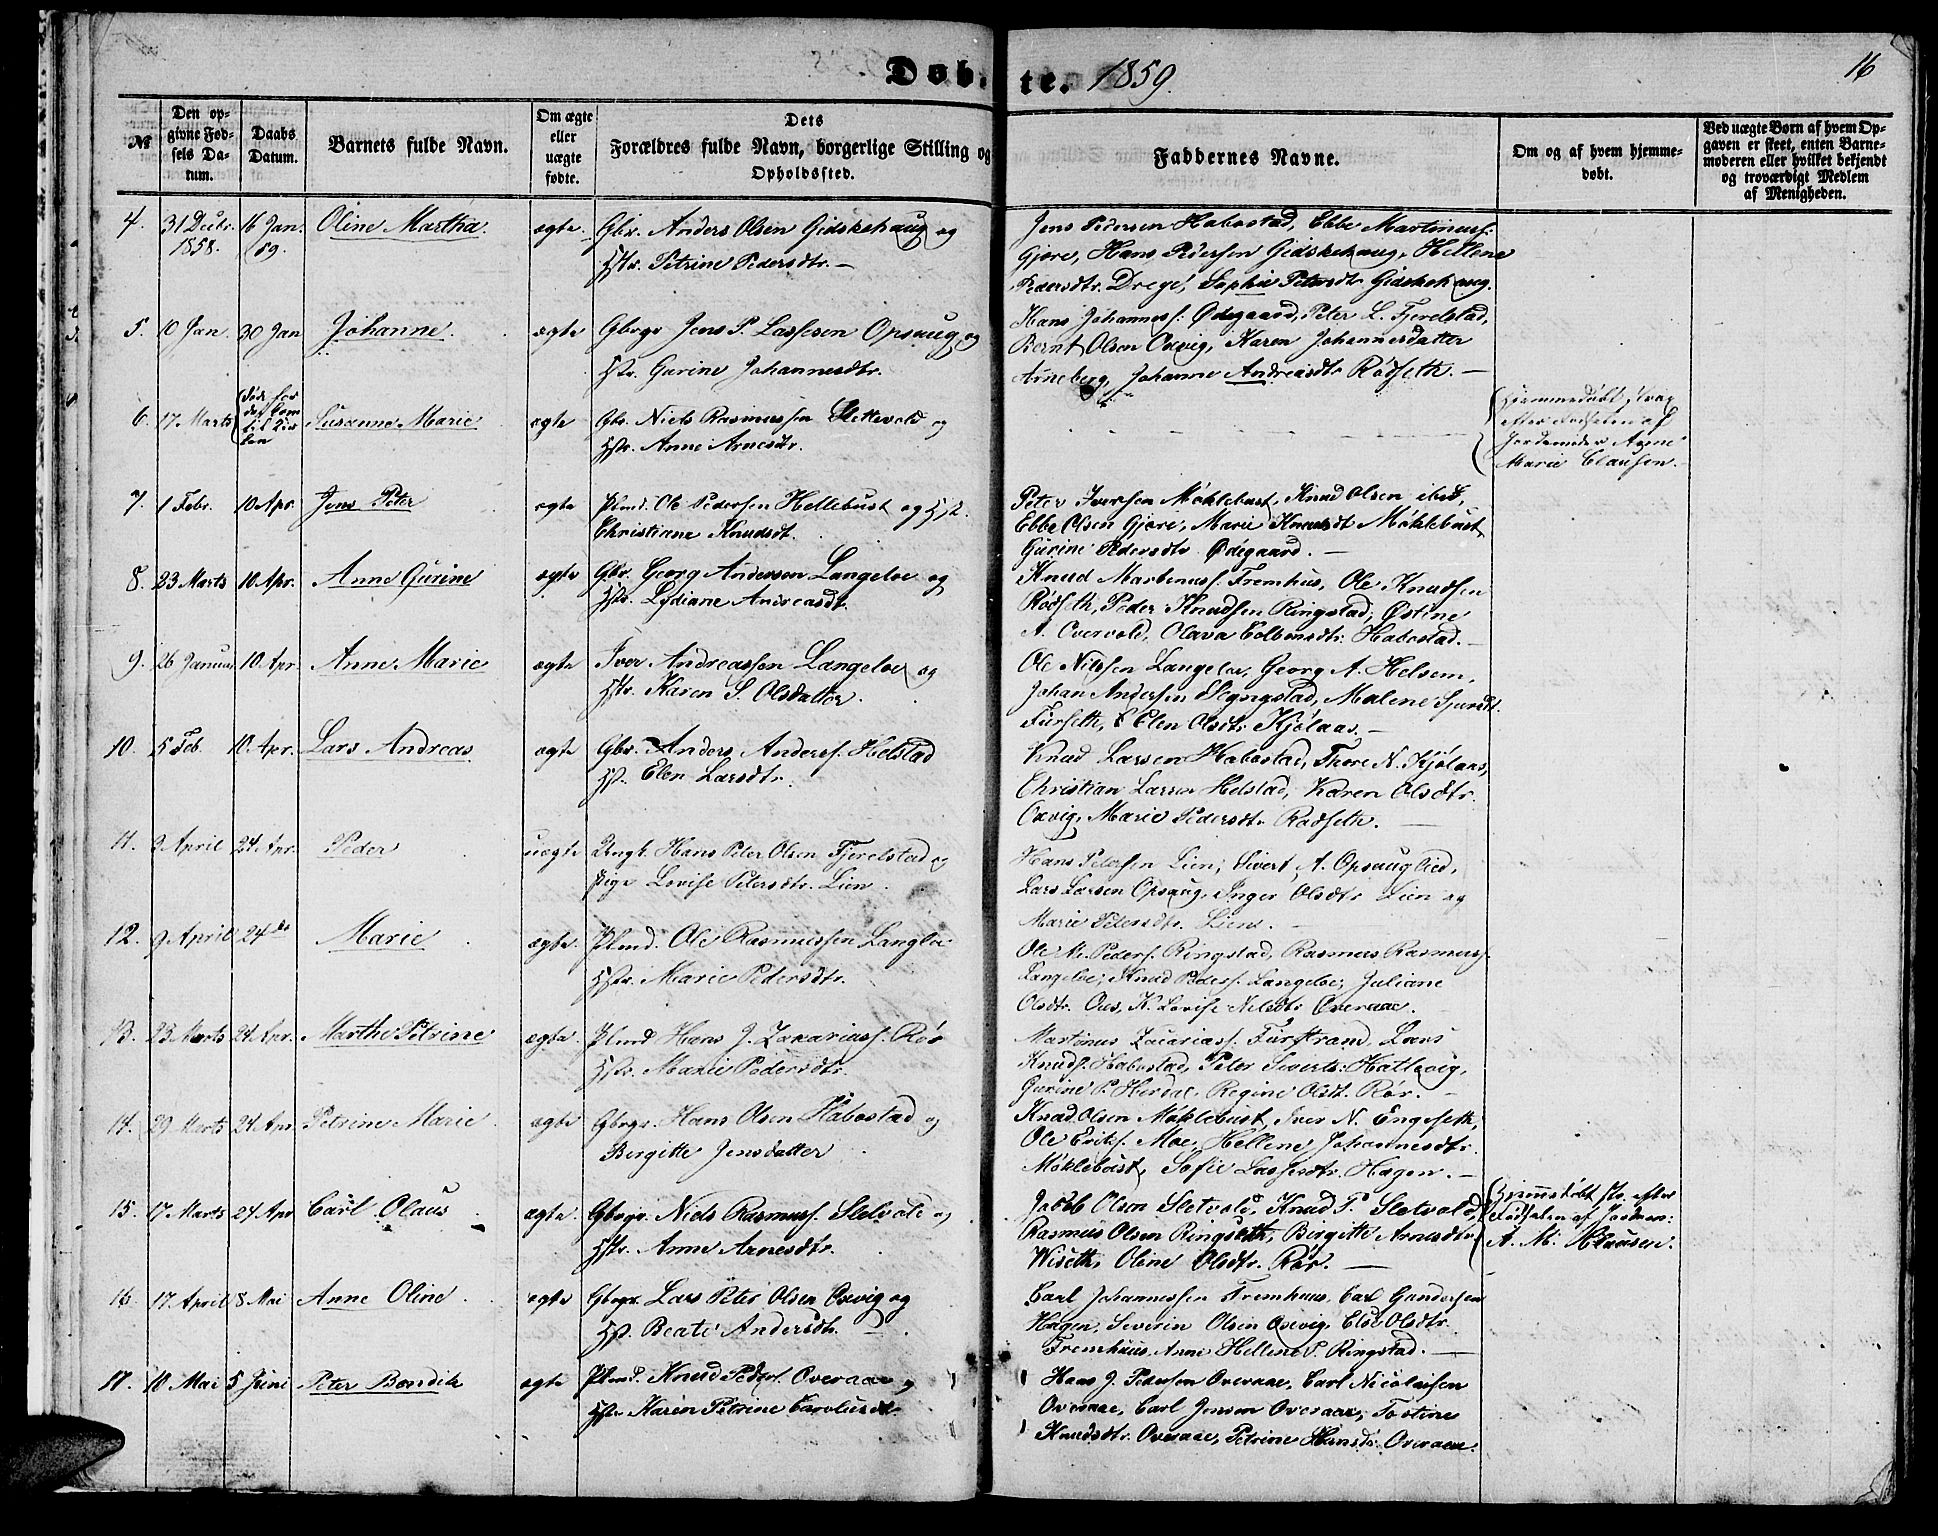 Døb-te. 1859.
16
№
Den opgivne Fødsels Datum.
Daabs Datum.
Barnets fulde Navn.
Om ægte eller uægte fødte.
Dets Forældres fulde Navn, borgerlige Stilling og Opholdssted.
Faddernes Navne.
Om og af hvem hjemmedøbt.
Ved uægte Børn af hvem Opgaven er skeet, enten Barnemoderen eller hvilket bekjendt og troværdigt Medlem af Menigheden.
4. 31 Decbr. 1858. 16 Jan. 59. Oline Martha. ægte. Gbr. Anders Olsen Gidskehaug og
Hstr. Petrine Pedersdtr. —
Jens Pedersen Habostad, Ebbe Martinuss.
Gjøre, Hans Pedersen Gidskehaug, Hellene
Pedersdtr. Drege, Sophie Petersdtr Gidskehaug.
5. 10 Jan. 30 Jan Johanne. ægte Gbrgr Jens P. Lassesen Opsaug og
Hstr. Gurine Johannesdtr.
Hans Johanness: Ødegaard, Peter L. Fjerelstad,
Bernt Olsen Oxvig, Karen Johannesdatter
Arneberg, Johanne Andreasdtr Rødseth. —
6. 17 Marts (Død før det kom til Kirken Susanne Marie ægte Gbr. Niels Rasmussen Slettevold og
Hstr. Anne Arnesdtr.
(Hjemmedøbt strax
efter Fødselen af
Jordemoder Anne
Marie Clausen. —
7. 1 Febr. 10 Apr. Jens Peter ægte Plmd. Ole Pedersen Hellebust og Hst.
Christiane Knudsdt.
Peter Iversen Møklebust, Knud Olsen ibid,
Ebbe Olsen Gjøre, Marie Knudsdt Møklebust,
Gurine Pedersdtr Ødegaard. —
8. 23 Marts 10 Apr. Anne Gurine ægte Gbr. Georg Andersen Langeloe og
Hstr. Lydiane Andreasdt.
Knud Martinuss. Fremhus, Ole Knudsen
Rødseth, Peder Knudsen Ringstad, Østine
A. Overvold, Olava Colbensdtr. Habostad. —
9. 26 Januar 10. Apr. Anne Marie ægte Iver Andreassen Langeloe og
Hstr. Karen S. Olsdatter.
Ole Nilssen Langeloe, Georg A. Helsem,
Johan Andersen Hegngstad, Malene Sjursdt.
Furseth, Elen Olsdtr Kjølaas. —
10. 5 Feb. 10. Apr. Lars Andreas ægte Gbr. Anders Anderss. Helstad
Hst. Elen Larsdtr.
Knud Larsen Habostad, Thore N. Kjølaas,
Christian Larsen Helstad, Karen Olsdtr.
Oxvig, Marie Pedersdtr Rødseth. —
11. 9 April 24. Apr. Peder uægte Ungk. Hans Peter Olsen Fjerelstad og
Pige Lovise Petersdtr. Lien.
Hans Petersen Lien, Sivert A. Opsauglied,
Lars Larsen Opsaug, Inger Olsdtr Lien og
Marie Petersdtr. Lien. —
12. 9 April 24de Marie ægte. Plmd. Ole Rasmussen Langloe
Hstr. Marie Pedersdtr.
Ole M. Peders. Ringstad, Rasmus Rasmuss.
Langeloe, Knud Peders. Langeloe, Juliane
Olsdtr. Ous, K. Lovise Nilsdtr Overaae.
13. 23 Marts 24 Apr. Marthe Petrine ægte. Plmd Hans J. Zakariass. Rør
Hstr. Marie Pedersdtr.
Martinus Zacariass. Furstrand, Lars
Knuds. Habostad, Peter Siverts: Hatlevig,
Gurine P. Herdal, Regine Olsdt. Rør. —
14. 29 Marts 24 Apr Petrine Marie. ægte Gbrgr. Hans Olsen Habostad og
Birgitte Jensdatter
Knud Olsen Møklebust, Iver N. Engeseth,
Ole Eriks. Moe, Hellene Johannesdtr.
Møklebust, Sofie Lassesdtr. Hagen. —
15. 17. Marts 24 Apr Carl Olaus. ægte. Gbrgr. Niels Rasmuss. Sletvold og
Hstr. Anne Arnesdtr.
Jacob Olsen Sletvold, Knud P. Sletvold,
Rasmus Olsen Ringseth, Birgitte Arnesdtr
Wiseth, Oline Olsdtr. Rør. —
(Hjemmedøbt str. efter
Fødselen af Jordem:
A. M. Clausen.
16. 17. April 8 Mai Anne Oline. ægte Gbrgr. Lars Peter Olsen Oxevig og
Hst. Beate Andersdtr. —
Carl Johannessen Fremhuus, Carl Gundersen
Hagen, Severin Olsen Oxevig, Else Olsdtr.
Fremhuus, Anne Hellene P. Ringstad. —
17. 10 Mai 5 Juni Peter Bendik ægte Plmd. Knud Peders. Overaae og
Hstr Karen Petrine Carolusdt.
Hans J. Pedersen Overaae, Carl Nicolaisen
Overaae, Carl Jensen Overaae, Tostine
Knudsdtr. Overaae, Petrine Hansdtr. Overaae.